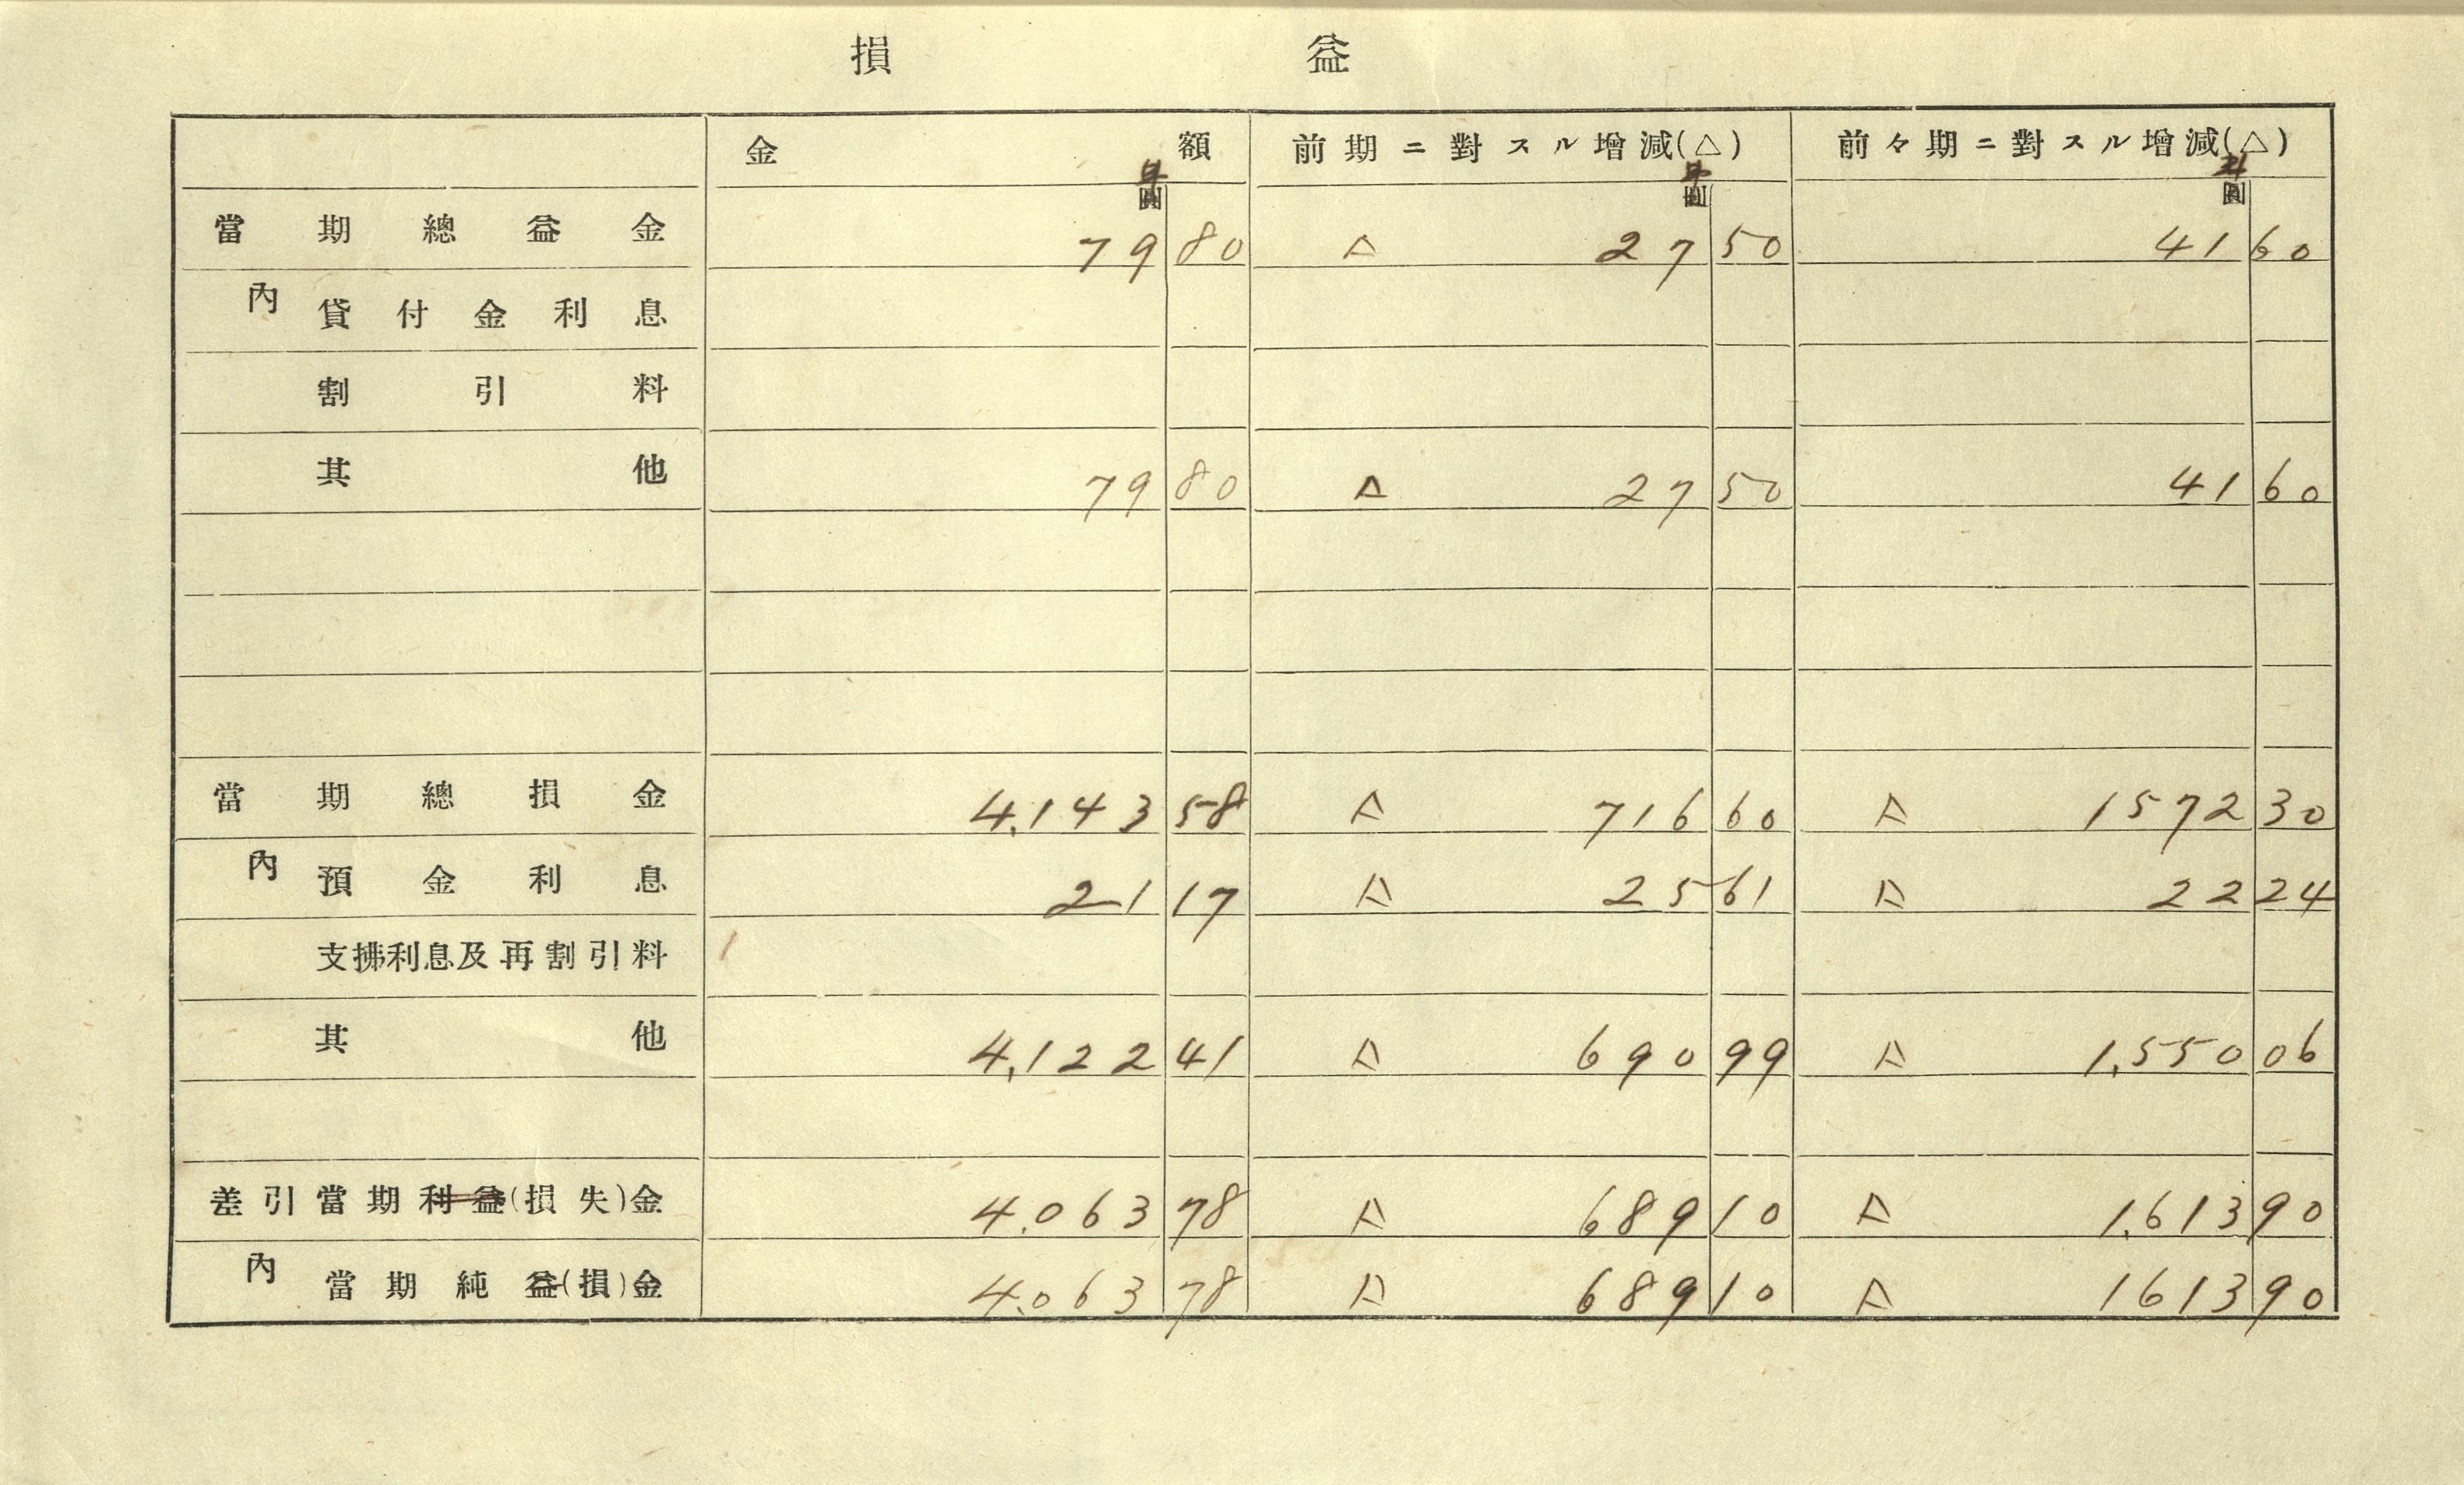 損益
金額 前期ニ對スル增減(△) 前々期ニ對スル增減(△)
圓 圓 圓
當期總益金 79 80 △ 27 50 41 60
內 貸付金利息
割引料
其他 79 80 △ 27 50 41 60
當期總損金 4,143 58 △ 716 60 △ 1572 30
內 預金利息 21 17 △ 25 61 △ 22 24
支拂利息及再割引料
其他 4,122 41 △ 690 99 △ 1,550 06
差引當期利益(損失)金 4,063 78 △ 689 10 △ 1,613 90
內 當期純益(損)金 4,063 78 △ 689 10 △ 1613 90